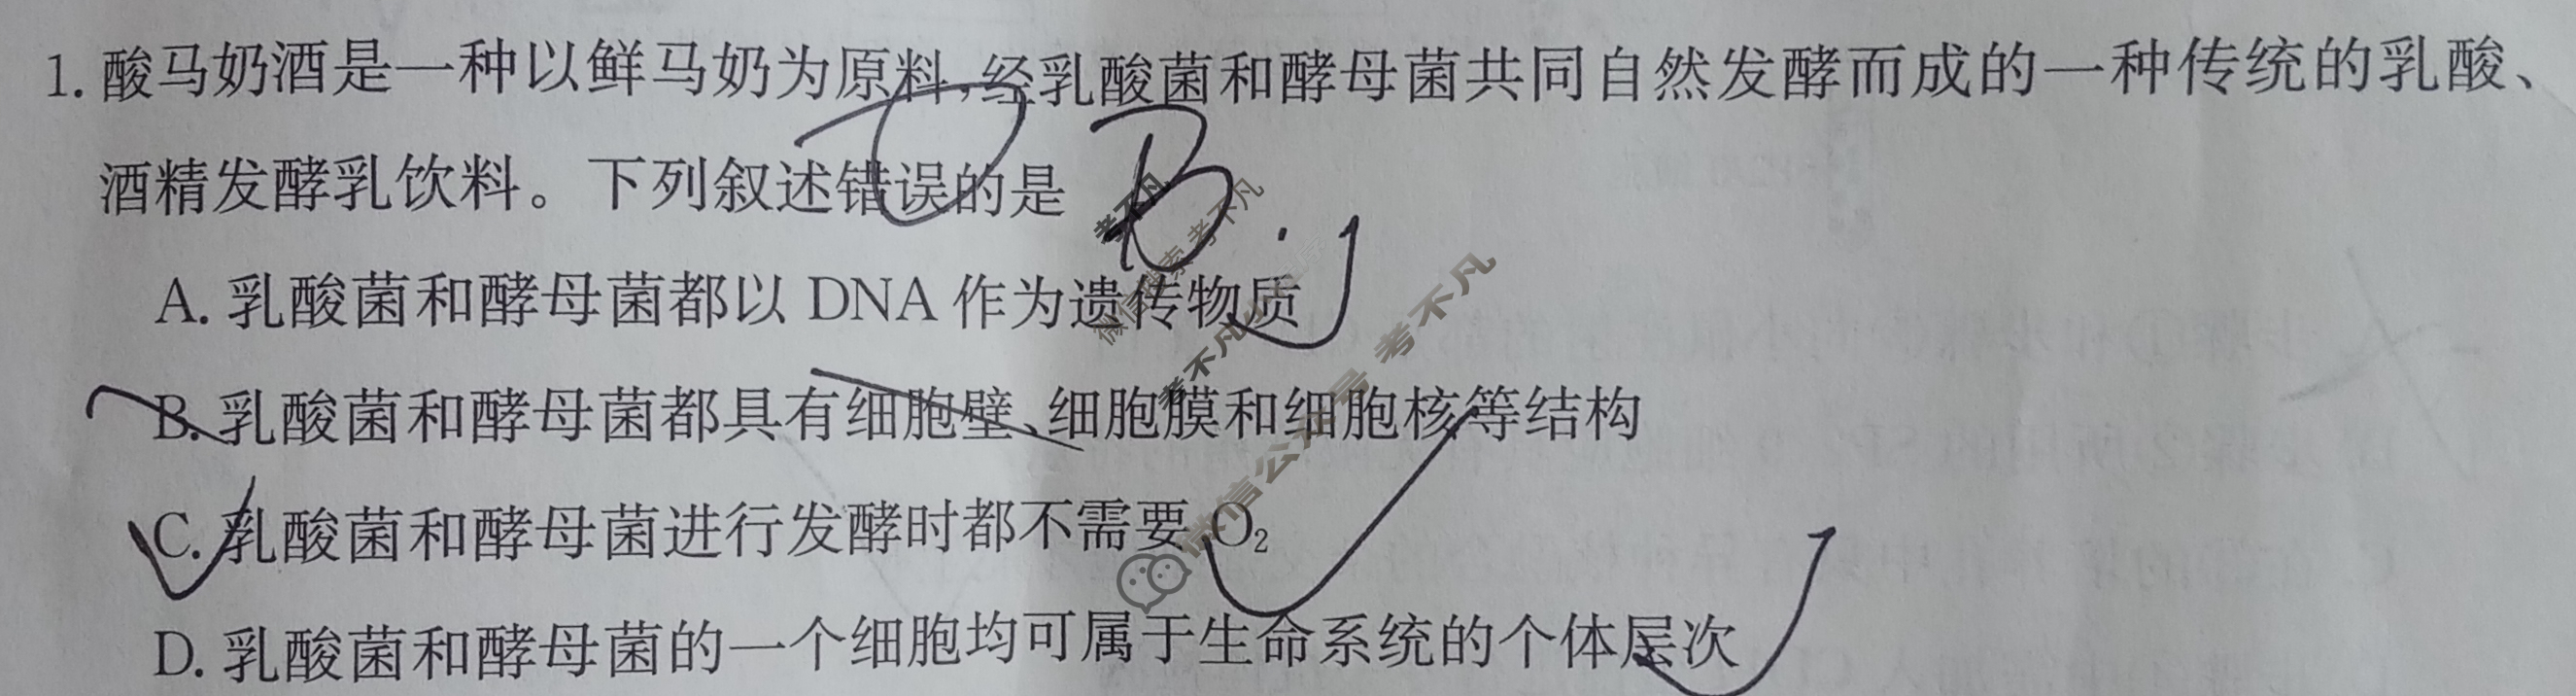 1. 酸马奶酒是一种以鲜马奶为原料,经乳酸菌和酵母菌共同自然发酵而成的一种传统的乳酸、
酒精发酵乳饮料。下列叙述错误的是 B.
A. 乳酸菌和酵母菌都以 DNA 作为遗传物质
B. 乳酸菌和酵母菌都具有细胞壁、细胞膜和细胞核等结构
C. 乳酸菌和酵母菌进行发酵时都不需要 O₂
D. 乳酸菌和酵母菌的一个细胞均可属于生命系统的个体层次
考不凡
微信搜索 考不凡
考不凡小程序
微信公众号 考不凡